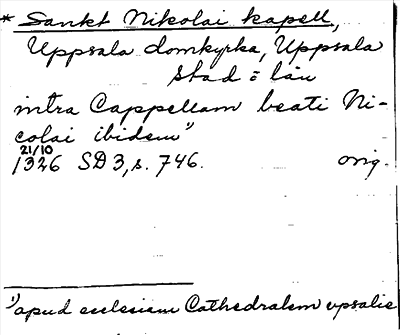 * Sankt Nikolai kapell,
Uppsala domkyrka, Uppsala
stad o län
intra Cappellam beati Ni-
colai ibidem¹⁾
21/10
1326 SD 3, s. 746. orig.
¹⁾apud ecclesiam Cathedralem vpsalie